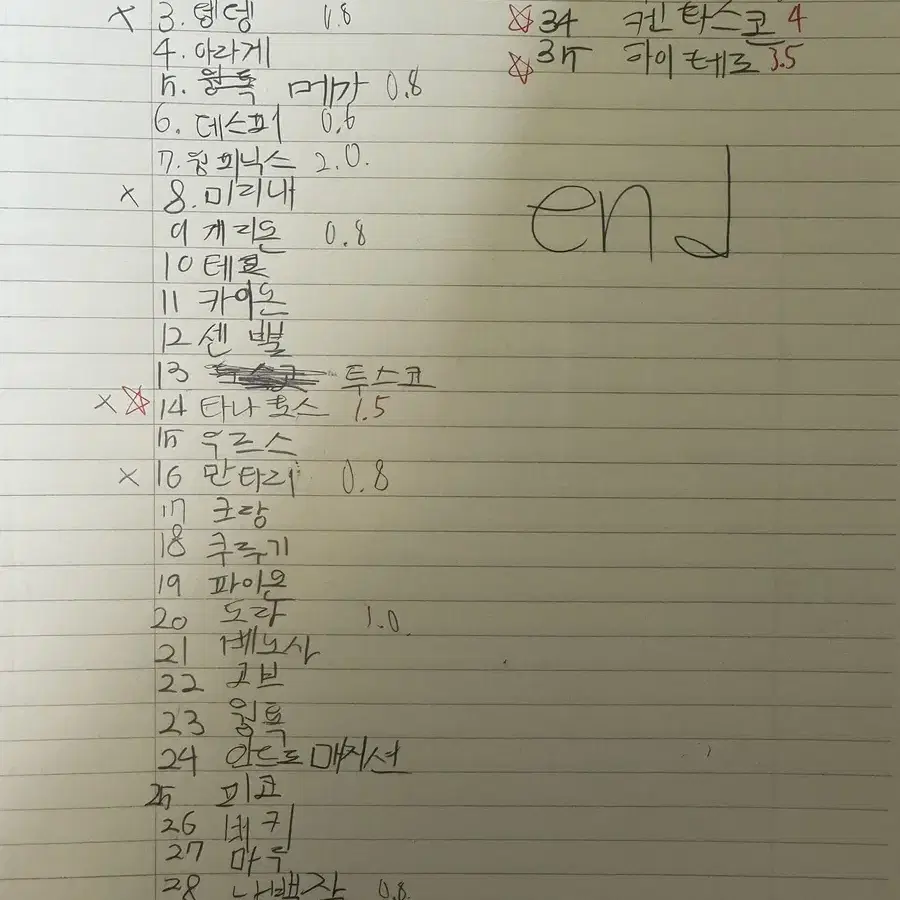 × 3. 텅텅 0.8
4. 아라게
5. 메가 0.8
6. 데스피 0.6
7. 윙피닉스 2.0.
× 8. 미리내
9 게리온 0.8
10 테로
11 카이온
12 센
13 투스코
× ☆ 14 타나토스 1.5
15 우르스
16 만타리 0.8
17 크랑
18 쿠루기
19 파이온
20 도라 1.0.
21 베노사
22 고브
23 윙톡
24 안드로매지션
25 피코
26 베키
27 마루
28 나백작 0.8
☆ 34 켄타스코 4
☆ 35 하이테로 3.5
end